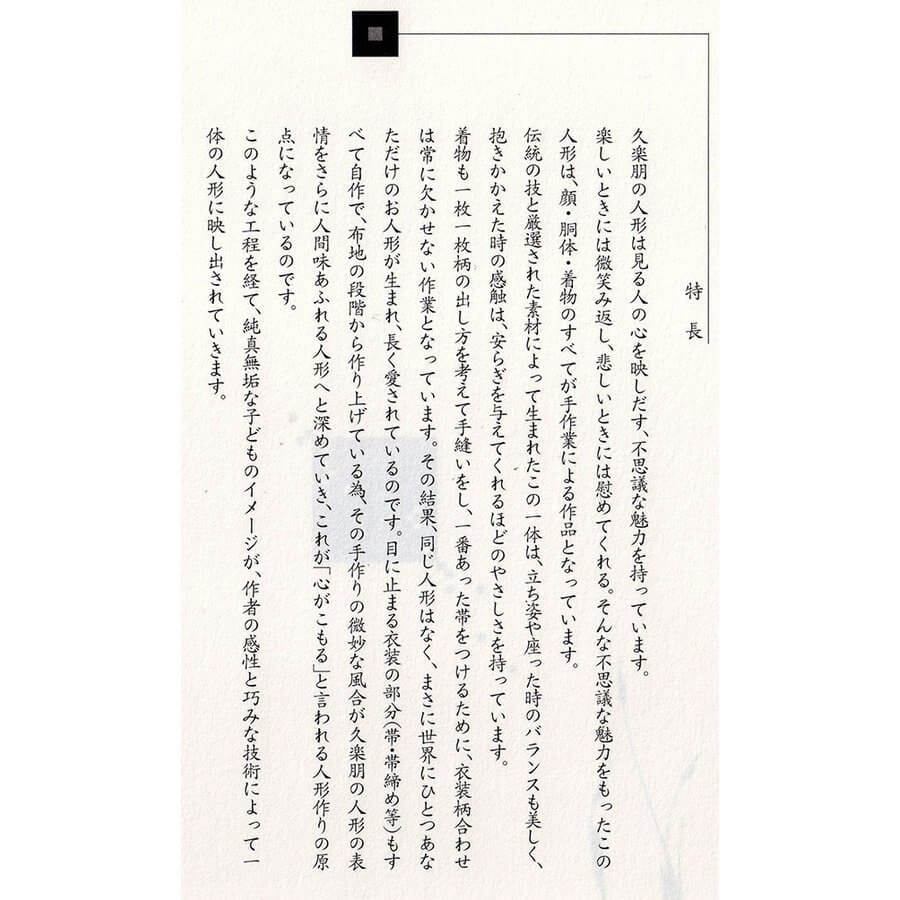 特長
久楽朋の人形は見る人の心を映しだす、不思議な魅力を持っています。
楽しいときには微笑み返し、悲しいときには慰めてくれる。そんな不思議な魅力をもったこの
人形は、顔・胴体・着物のすべてが手作業による作品となっています。
伝統の技と厳選された素材によって生まれたこの一体は、立ち姿や座った時のバランスも美しく、
抱きかかえた時の感触は、安らぎを与えてくれるほどのやさしさを持っています。
着物も一枚一枚柄の出し方を考えて手縫いをし、一番あった帯をつけるために、衣装柄合わせ
は常に欠かせない作業となっています。その結果、同じ人形はなく、まさに世界にひとつあな
ただけのお人形が生まれ、長く愛されているのです。目に止まる衣装の部分(帯・帯締め等)もす
べて自作で、布地の段階から作り上げている為、その手作りの微妙な風合が久楽朋の人形の表
情をさらに人間味あふれる人形へと深めていき、これが「心がこもる」と言われる人形作りの原
点になっているのです。
このような工程を経て、純真無垢な子どものイメージが、作者の感性と巧みな技術によって一
体の人形に映し出されていきます。